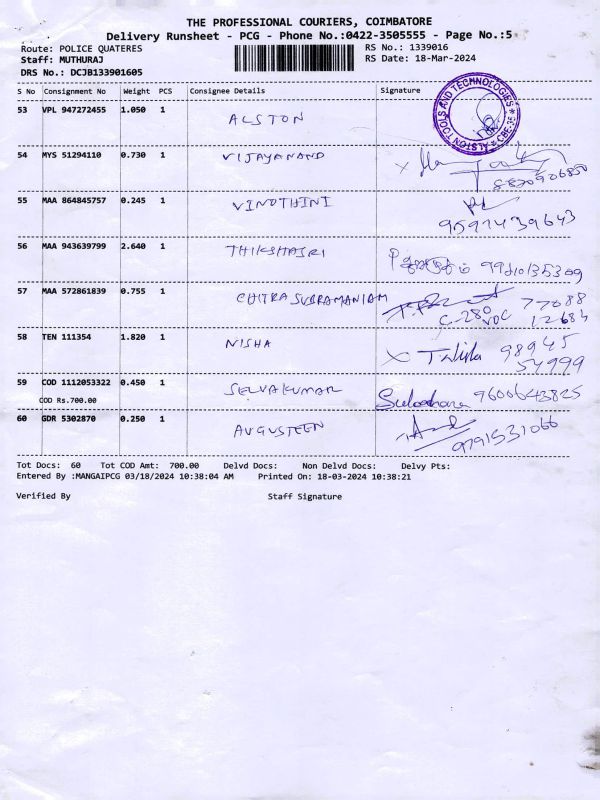 THE PROFESSIONAL COURIERS, COIMBATORE
Delivery Runsheet - PCG - Phone No.:0422-3505555 - Page No.:5
Route: POLICE QUATERES RS No.: 1339016
Staff: MUTHURAJ RS Date: 18-Mar-2024
DRS No.: DCJB133901605
S No Consignment No Weight PCS Consignee Details Signature
53 VPL 947272455 1.050 1 ALSTON
ALSTON TOOLS AND TECHNOLOGIES * CBE-35 *
54 MYS 51294110 0.730 1 VIJAYANAND
55 MAA 864845757 0.245 1 VINOTHINI
56 MAA 943639799 2.640 1 THIKSHAIRI
57 MAA 572861839 0.755 1 CHITRA SUBRAMANIAM 77088
C-280 VOC 12684
58 TEN 111354 1.820 1 NISHA 98945
54999
59 COD 1112053322 0.450 1 SELVAKUMAR 9600643825
COD Rs.700.00
60 GDR 5302870 0.250 1 AUGUSTEEN
9791531066
Tot Docs: 60 Tot COD Amt: 700.00 Delvd Docs: Non Delvd Docs: Delvy Pts:
Entered By :MANGAIPCG 03/18/2024 10:38:04 AM Printed On: 18-03-2024 10:38:21
Verified By Staff Signature